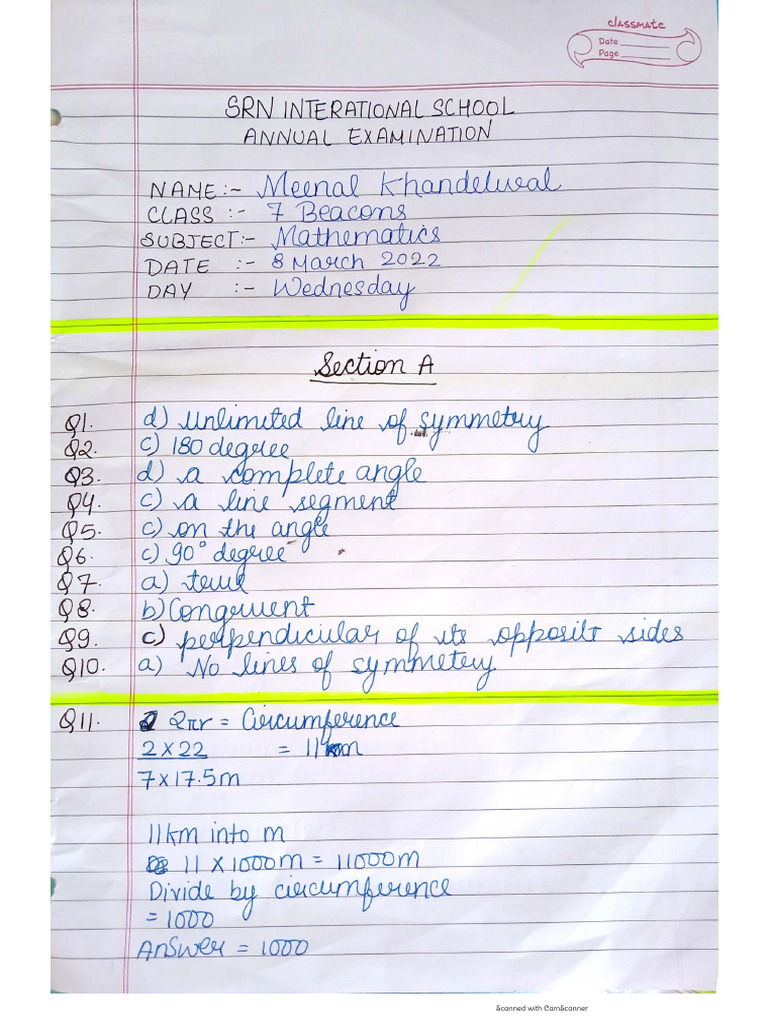 classmate
Date
Page
SRN INTERATIONAL SCHOOL
ANNUAL EXAMINATION
NAME:- Meenal Khandelwal
CLASS :- 7 Beacons
SUBJECT:- Mathematics
DATE :- 8 March 2022
DAY :- Wednesday
Section A
Q1. d) Unlimited line of symmetry
Q2. c) 180 degree
Q3. d) a complete angle
Q4. c) a line segment
Q5. c) on the angle
Q6. c) 90° degree
Q7. a) true
Q8. b) Congruent
Q9. c) perpendicular of its opposite sides
Q10. a) No lines of symmetry
Q11. 2πr = Circumference
2 x 22 = 11 m
7 x 17.5m
11km into m
11 x 1000m = 11000m
Divide by circumference
= 1000
Answer = 1000
Scanned with CamScanner